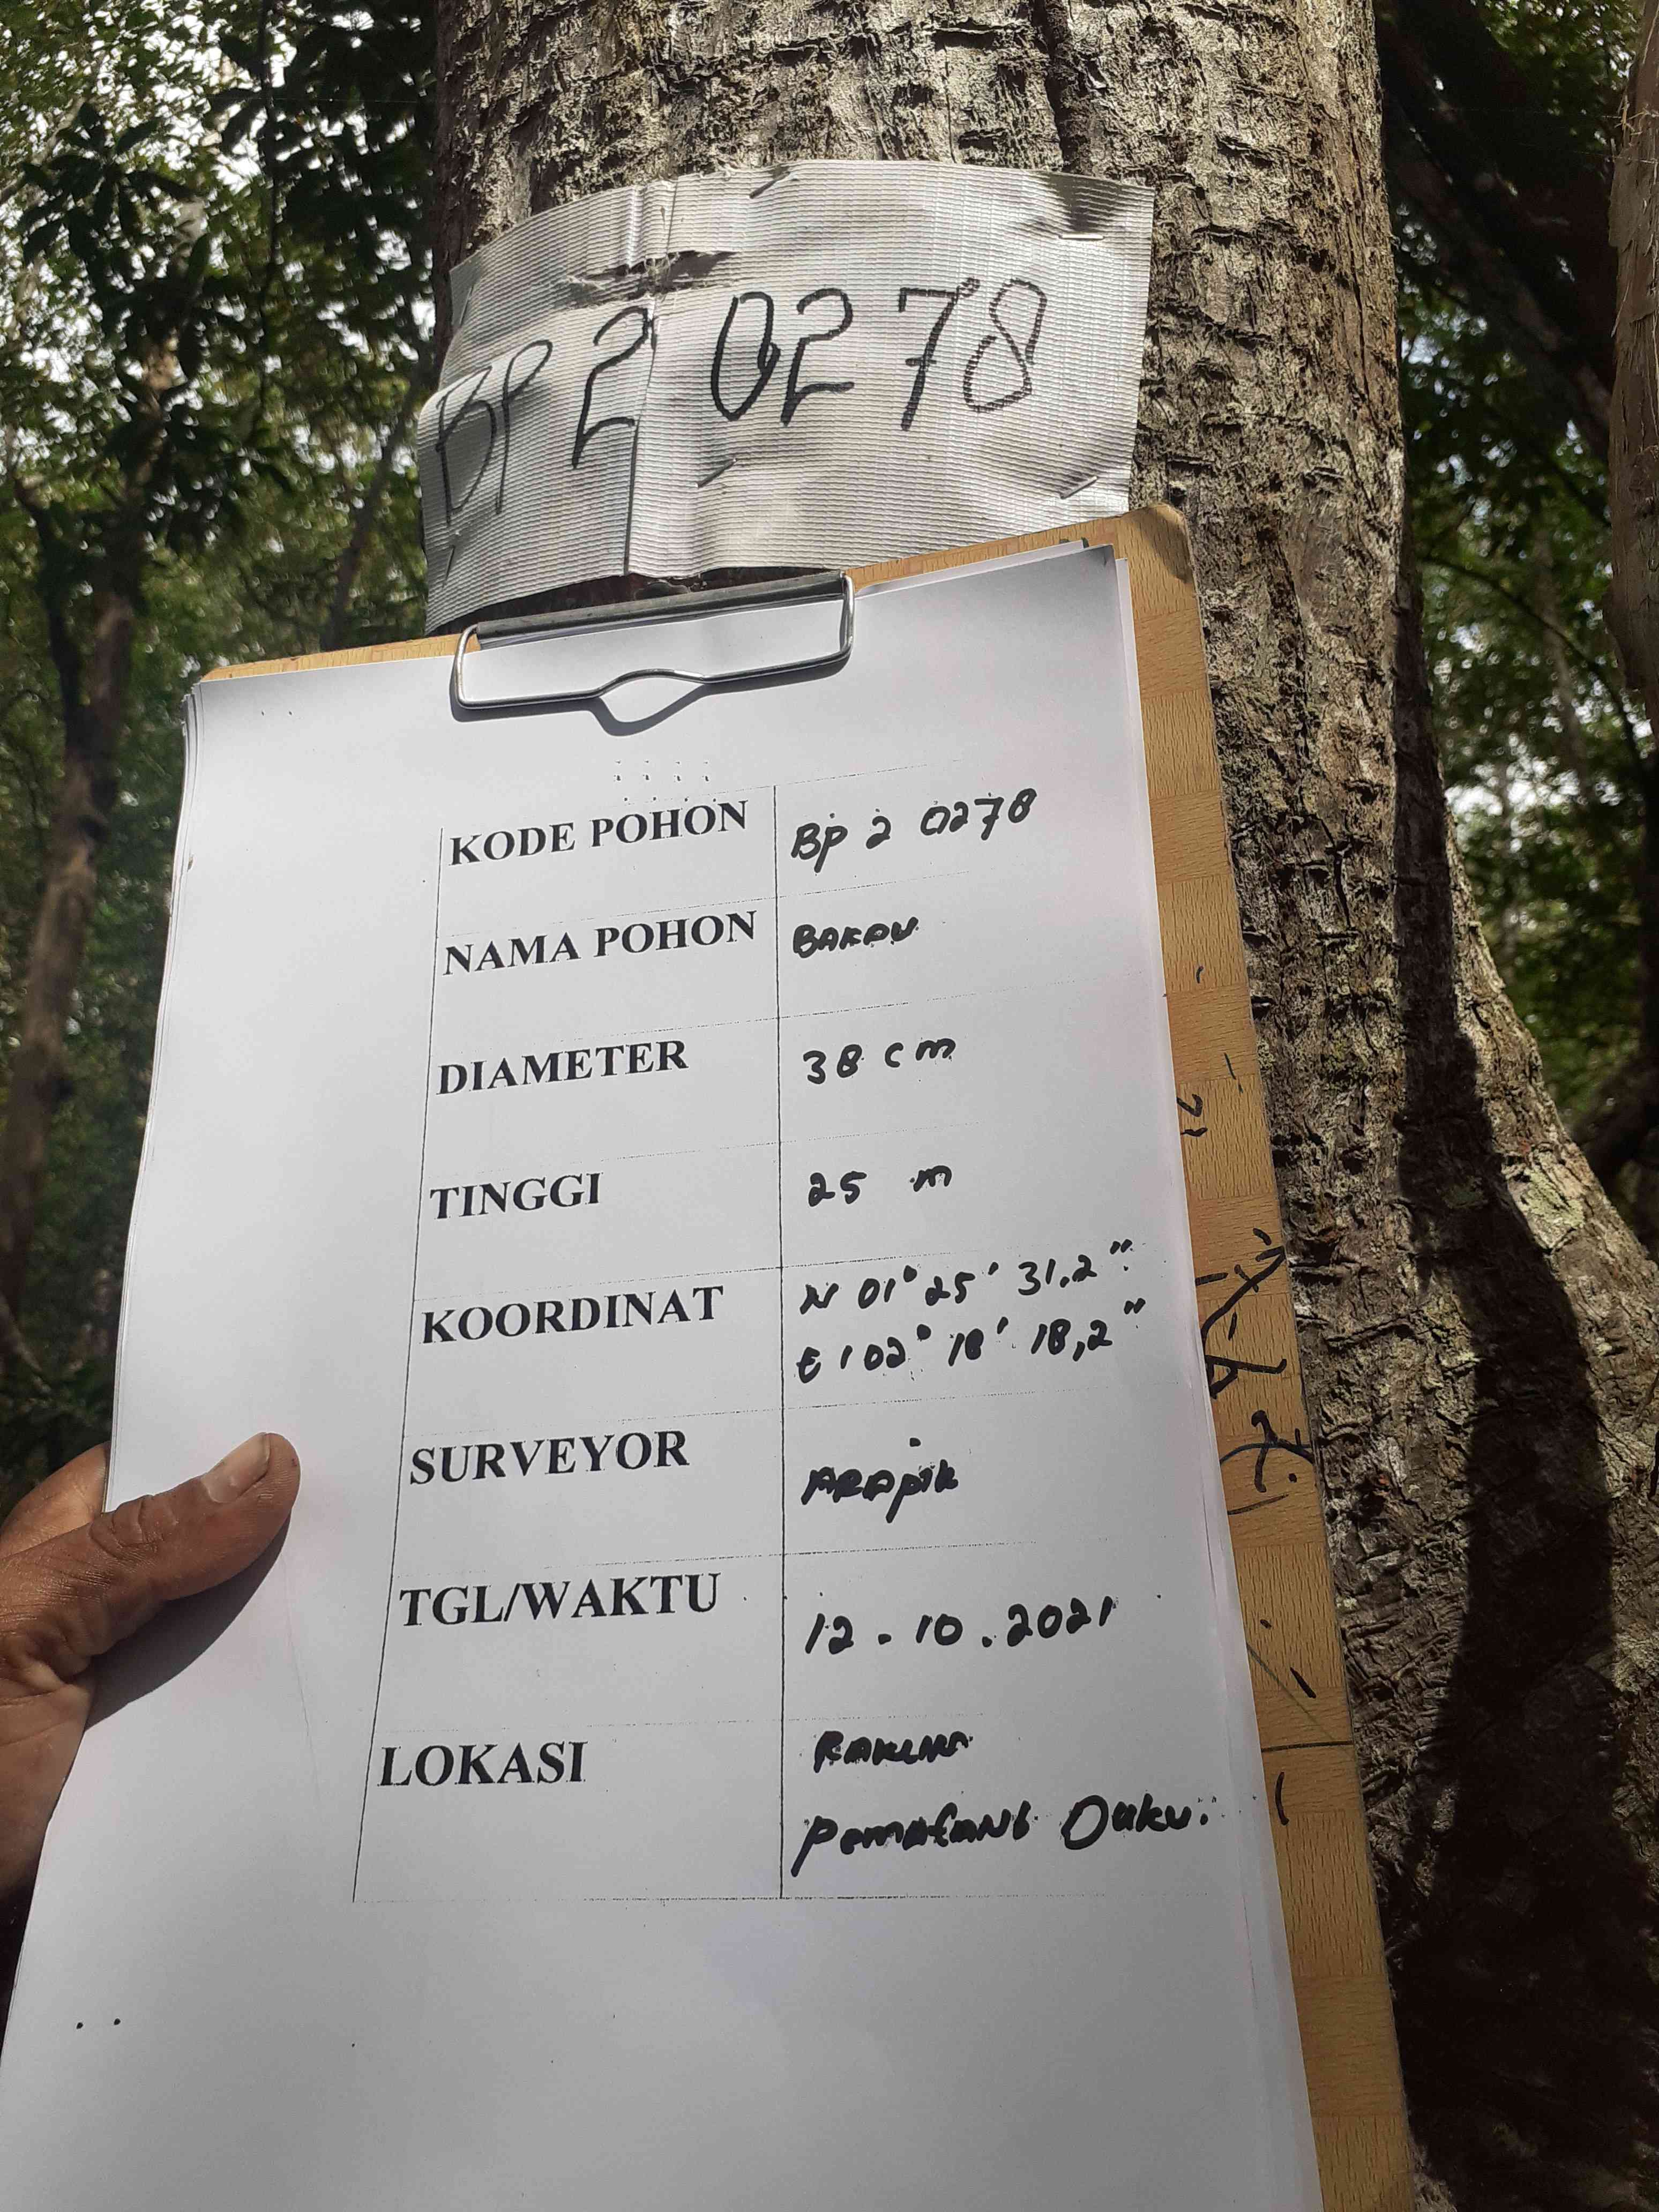 BP 2 0278
KODE POHON Bp 2 0278
NAMA POHON BAKAU
DIAMETER 38 cm
TINGGI 25 m
KOORDINAT N 01° 25' 31.2"
E 102° 18' 18,2"
SURVEYOR ARApik
TGL/WAKTU 12.10.2021
LOKASI
Duku.